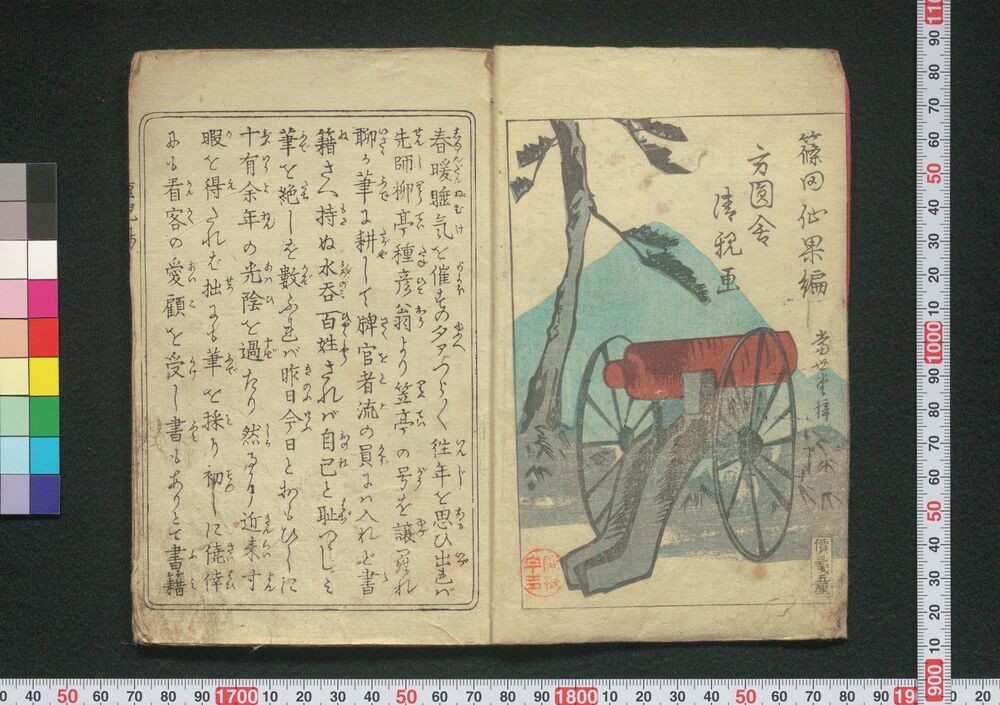 篠田仙果編
方圓舍
清親画
當世堂梓
價
春暖睡気を催すの夕アつら〳〵往年を思ひ出れバ
先師柳亭種彦翁より笠亭の号を譲られ
聊か筆に耕して牌官者流の員にハ入れど書
籍さへ持ぬ水呑百姓されバ自己と恥て
筆を絶しを數ふれバ昨日今日と おもひしに
十有余年の光陰を過たり然るより近來寸
暇を得たれば拙にも筆を採り初しに僥倖
にも看客の愛顧を受し書もありとて書籍